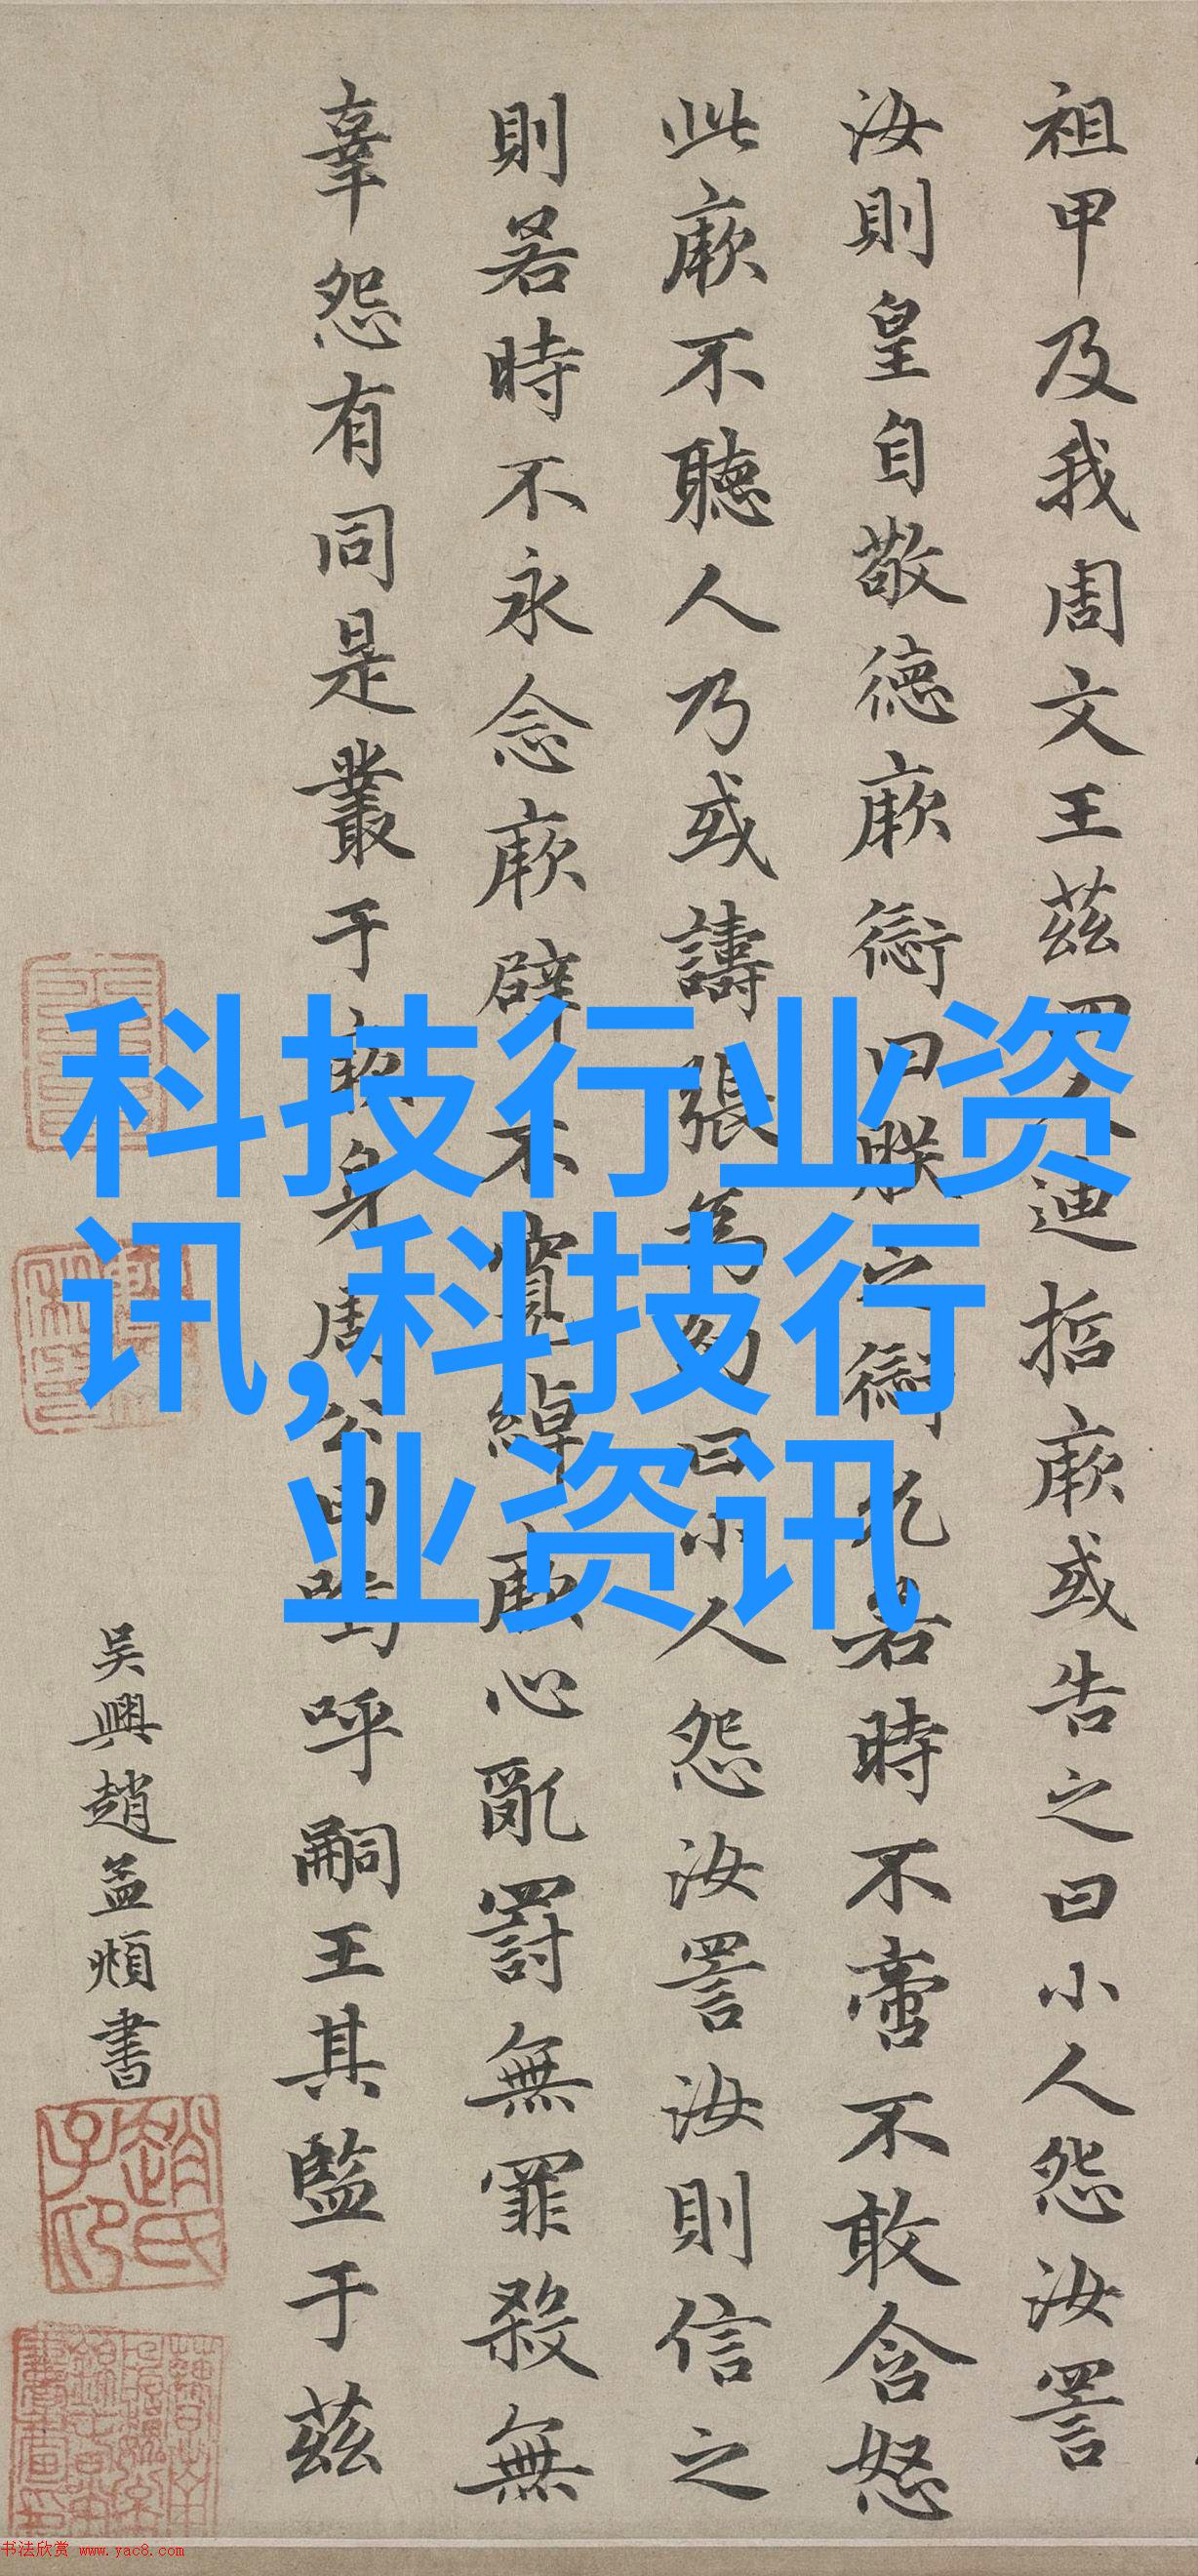 祖甲及我周文王茲四人迪哲厥或告之曰小人怨汝詈
汝則皇自敬德厥愆曰朕之愆允若時不啻不敢含怒
此厥不聽人乃或譸張為幻曰小人怨汝詈汝則信之
則若時不永念厥辟不寬綽厥心亂罰無罪殺無
辜怨有同是叢于厥身周公曰嗚呼嗣王其監于茲
吴興趙孟頫書
趙氏子昂
科技行业资
讯,科技行
业资讯
书法欣赏 www.yac8.com